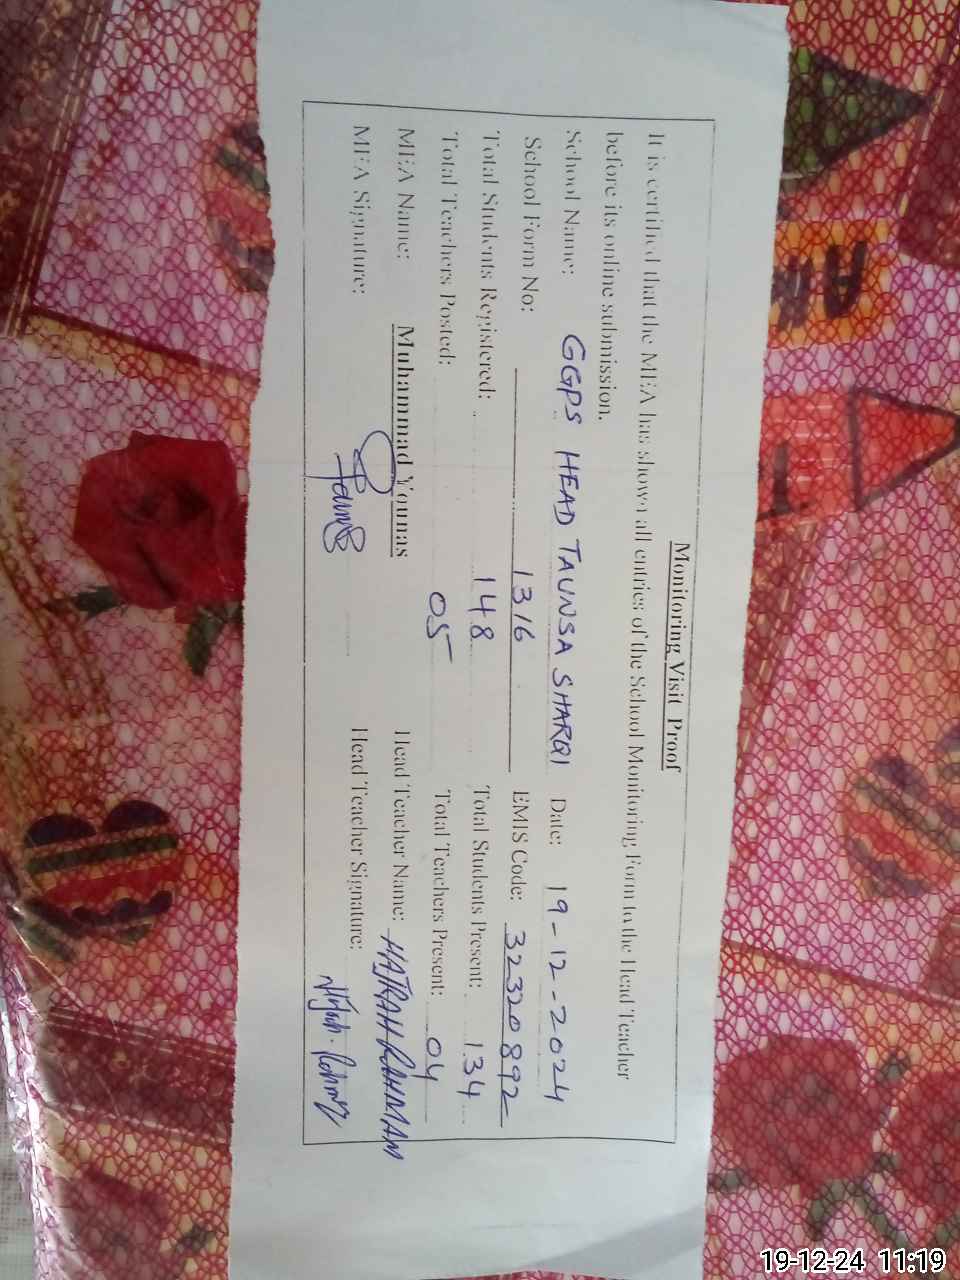 Monitoring Visit Proof
It is certified that the MEA has shown all entries of the School Monitoring Form to the Head Teacher
before its online submission.
School Name: GGPS HEAD TAUNSA SHARQI Date: 19-12-2024
School Form No: 1316 EMIS Code: 32320892
Total Students Registered: 148 Total Students Present: 134
Total Teachers Posted: 05 Total Teachers Present: 04
MEA Name: Muhammad Younas Head Teacher Name: HAJRAH RAHMAN
MEA Signature: Head Teacher Signature:
19-12-24 11:19